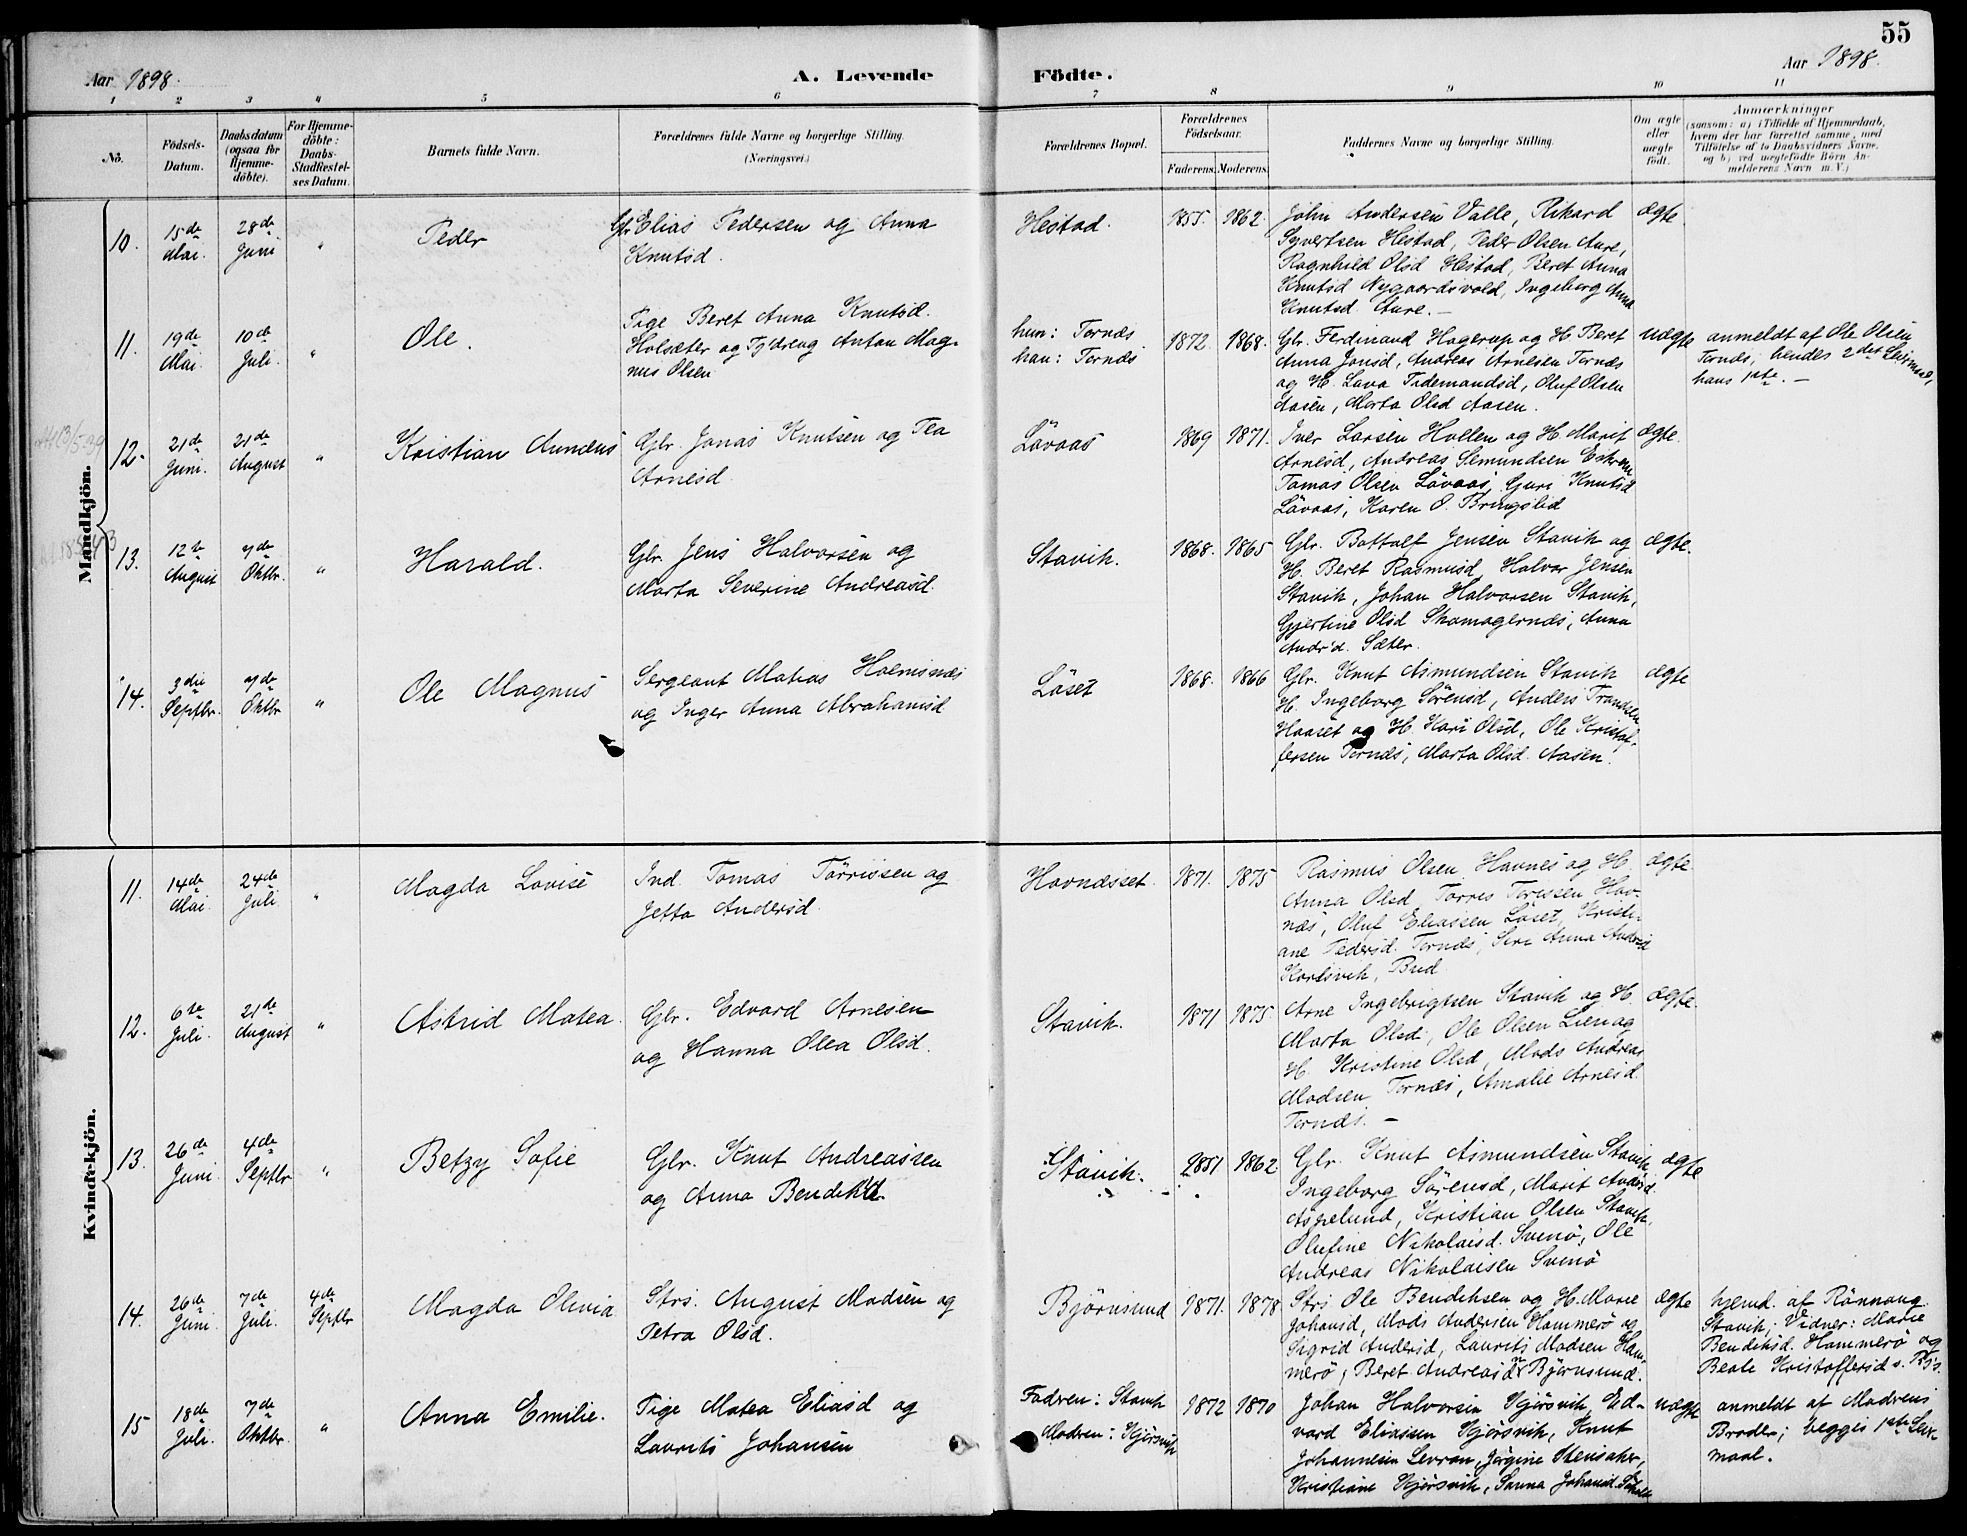 55
Aar 1898.
A. Levende Födte.
Aar 1898.
1 2 3 4 5 6 7 8 9 10 11
No.
Födsels-Datum.
Daabsdatum (ogsaa for Hjemme-döbte).
For Hjemme-döbte: Daabs-Stadfæstel-ses Datum.
Barnets fulde Navn.
Forældrenes fulde Navne og borgerlige Stilling.
(Næringsvei.)
Forældrenes Bopæl.
Forældrenes Födselsaar.
Faderens. Moderens.
Faddernes Navne og borgerlige Stilling.
Om ægte eller uægte födt.
Anmærkninger
(saasom: a) i Tilfælde af Hjemmedaab,
hvem der har forrettet samme, med
Tilföielse af to Daabsvidners Navne,
og b) ved uægtefödte Börn An-
melderens Navn m. V.)
Mandkjön.
10. 15de Mai. 28de Juni " Peder
Gbr. Elias Pedersen og Anna
Knutsd.
Hestad. 1855. 1862.
John Andersen Valle, Rikard
Syvertsen Hestad, Peder Olsen Aure,
Ragnhild Olsd Hestad, Beret Anna
Knutsd Nygaardsvold, Ingeborg Anna
Knutsd. Aure. —
ægte.
11. 19de Mai. 10de Juli. " Ole.
Pige Beret Anna Knutsd.
Holsæter og Tj'dreng Anton Mag-
nus Olsen
hun: Tornæs
han: Tornæs
1872. 1868.
Gbr. Ferdinand Hagerup og H. Beret
Anna Jonsd, Andreas Arnesen Tornæs
og H. Lava Tidemandsd, Oluf Olsen
Aasen, Marta Olsd Aasen.
uægte
anmeldt af Ole Olsen
Tornæs; hendes 2det Leirmaal,
hans 1ste. —
12. 21de Juni. 21de August " Kristian Aundus
Gbr. Jonas Knutsen og Tea
Arnesd.
Lövaas 1869 1871.
Iver Larsen Hollen og H. Marit
Arnesd, Andreas Semundsen Eskrem
Tomas Olsen Lövaas, Guri Knutsd
Lövaas, Karen O. Bringslid
ægte.
13. 12te August 7de Oktbr. " Harald.
Gbr. Jens Halvorsen og
Marta Severine Andreasd.
Stavik. 1868. 1865
Gbr. Bottolf Jensen Stavik og
H. Beret Rasmusd, Halvor Jensen
Stavik, Johan Halvorsen Stavik,
Gjertine Olsd Skomagernæs, Anna
Andr'd. Sæter.
ægte.
14. 3die Septbr. 7de Oktbr " Ole Magnus
Sergeant Matias Holmsnæs
og Inger Anna Abrahamsd
Löset 1868. 1866
Gbr. Knut Asmundsen Stavik
H. Ingeborg Sörensd, Anders Trandsen
Haaset og H. Kari Olsd, Ole Kristof-
fersen Tornæs, Marta Olsd. Aasen.
ægte
Kvindekjön.
11. 14de Mai. 24de Juli. " Magda Lovise
Ind. Tomas Törrissen og
Jetta Andersd.
Havnæsset. 1871. 1875
Rasmus Olsen Havnes og H.
Anna Olsd. Torres Toressen Hav-
næs, Oluf Eliassen Löset, Kristi-
ane Pedersd. Tornæs, Seri Anna Andrsd
Korsvik, Bud.
ægte
12. 6te Juli. 21de August " Astrid Matea.
Gbr. Edvard Arnesen
og Hanna Olea Olsd.
Stavik. 1871 1875.
Arne Ingebrigtsen Stavik og H.
Marta Olsd, Ole Olsen Lien og
H. Kristine Olsd, Mads Andreas
Madsen Tornæs, Amalie Arnesd.
Tornæs. —
ægte.
13. 26de Juni 4de Septbr " Betzy Sofie
Gbr. Knut Andreassen
og Anna Bendiktsd.
Stavik. 1851 1862
Gbr. Knut Asmundsen Stavik,
Ingeborg Sörensd, Marit Andrsd.
Aspelund, Kristian Olsen Stavik,
Olufine Nikolaisd. Svenö, Ole
Andreas Nikolaisen Svenö
ægte
14. 26de Juni 7de Juli. 4de Septbr Magda Olivia
Strs. August Madsen og
Petra Olsd.
Bjørnsund 1871. 1878.
Strs Ole Bendiksen og H. Marie
Johansd, Mads Andersen Hammerö og
Sigrid Andersd, Laurits Madsen Ham-
merö, Beret Andreasd Bjørnsund.
ægte
hjemd. af Rönnaug
Stavik; Vidner: Marie
Bendiksd. Hammerö og
Beate Kristoffersd s. St.
15 18de Juli. 7de Oktbr. " Anna Emilie.
Pige Matea Eliasd og
Laurits Johansen
Fadren: Stavik
Modren: Kjörsvik
1872 1870
Johan Halvorsen Kjörsvik, Ed-
vard Eliassen Kjörsvik, Knut
Johannesen Levran, Jörgine Stensaker,
Kristiane Kjörsvik, Sanna Johansd.
uægte
anmeldt af Modrens
Broder; begges 1ste Leir-
maal.